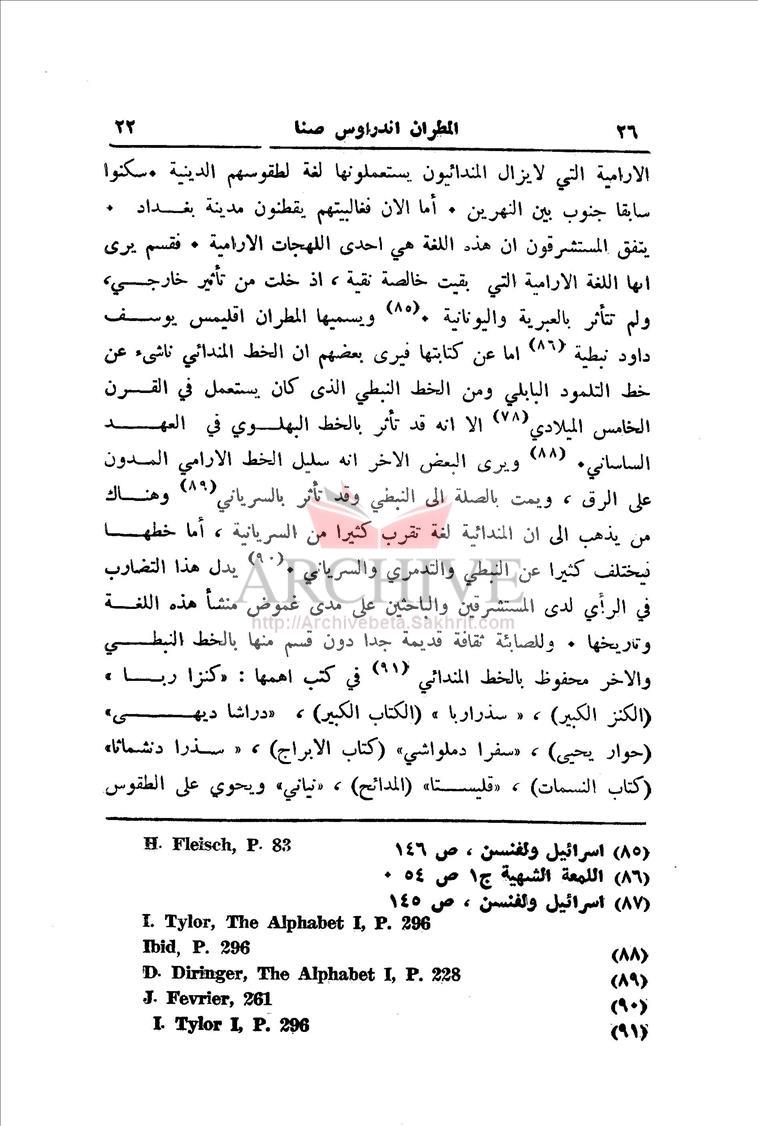 ٢٦ المطران اندراوس صنا ٢٢
الارامية التي لايزال المندائيون يستعملونها لغة لطقوسهم الدينية •سكنوا
سابقا جنوب بين النهرين • أما الان فغالبيتهم يقطنون مدينة بغـــداد •
يتفق المستشرقون ان هذه اللغة هي احدى اللهجات الارامية • فقسم يرى
انها اللغة الارامية التي بقيت خالصة نقية ، اذ خلت من تأثير خارجــي،
ولم تتأثر بالعبرية واليونانية •(٨٥) ويسميها المطران اقليمس يوســـف
داود نبطية (٨٦) اما عن كتابتها فيرى بعضهم ان الخط المندائي ناشىء عن
خط التلمود البابلي ومن الخط النبطي الذى كان يستعمل في القـــرن
الخامس الميلادي(٧٨) الا انه قد تأثر بالخط البهلـــوي في العهـــــد
الساساني• (٨٨) ويرى البعض الاخر انه سليل الخط الارامي المـدون
على الرق ، ويمت بالصلة الى النبطي وقد تأثر بالسرياني(٨٩) وهنــاك
من يذهب الى ان المندائية لغة تقرب كثيرا من السريانية ، أما خطهـــا
فيختلف كثيرا عن النبطي والتدمري والسرياني •(٩٠) يدل هذا التضارب
ARCHIVE
في الرأي لدى المستشرقين والباحثين على مدى غموض منشأ هذه اللغـــة
http://Archivebeta.Sakhrit.com
وتاريخها • وللصابئة ثقافة قديمة جدا دون قسم منها بالخط النبطـــي
والاخر محفوظ بالخط المندائي (٩١) في كتب اهمها : «كنزا ربـــا »
(الكنز الكبير) ، « سذراربا » (الكتاب الكبير) ، «دراشا ديهـــــى»
(حوار يحيى) ، «سفرا دملواشي» (كتاب الابراج) ، « ســذرا دنشماثا»
(كتاب النسمات) ، «قليســـتا» (المدائح) ، «نياني» ويحوي على الطقوس
(٨٥) اسرائيل ولفنسن ، ص ١٤٦ H. Fleisch, P. 83
(٨٦) اللمعة الشهية ج١ ص ٥٤ •
(٨٧) اسرائيل ولفنسن ، ص ١٤٥
I. Tylor, The Alphabet I, P. 296
(٨٨) Ibid, P. 296
(٨٩) D. Diringer, The Alphabet I, P. 228
(٩٠) J. Fevrier, 261
(٩١) I. Tylor I, P. 296